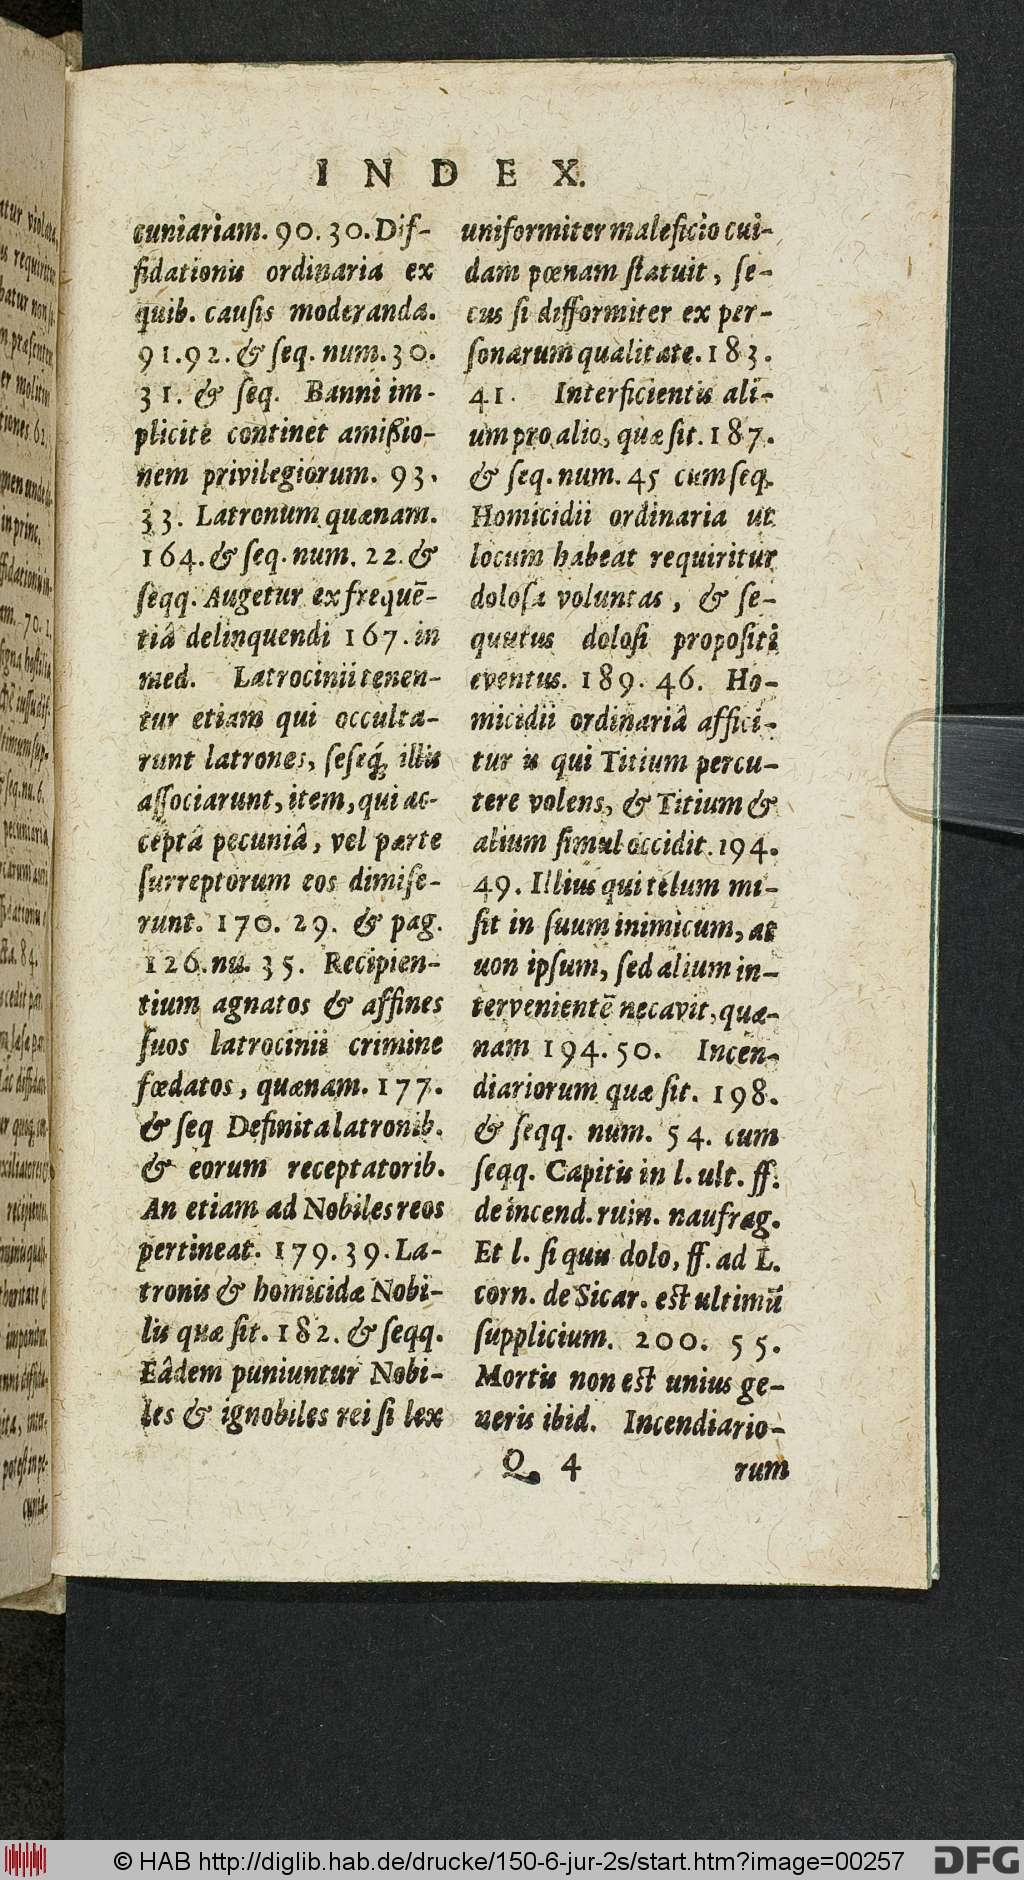 INDEX.
cuniariam. 90. 30. Dif-
fidationis ordinaria ex
quib. causis moderanda.
91. 92. & seq. num. 30.
31. & seq. Banni im-
plicitè continet amißio-
nem privilegiorum. 93.
33. Latronum quænam.
164. & seq. num. 22. &
seqq. Augetur ex frequē-
tiâ delinquendi 167. in
med. Latrocinii tenen-
tur etiam qui occulta-
runt latrones, seseq́; illis
associarunt, item, qui ac-
ceptâ pecuniâ, vel parte
surreptorum eos dimise-
runt. 170. 29. & pag.
126. nu. 35. Recipien-
tium agnatos & affines
suos latrocinii crimine
fœdatos, quænam. 177.
& seq Definita latronib.
& eorum receptatorib.
An etiam ad Nobiles reos
pertineat. 179. 39. La-
tronis & homicidæ Nobi-
lis quæ sit. 182. & seqq.
Eâdem puniuntur Nobi-
les & ignobiles rei si lex
uniformiter maleficio cui-
dam pœnam statuit, se-
cus si difformiter ex per-
sonarum qualitate. 183.
41. Interficientis ali-
um pro alio, quæ sit. 187.
& seq. num. 45 cum seq.
Homicidii ordinaria ut
locum habeat requiritur
dolosa voluntas, & se-
quutus dolosi propositi
eventus. 189. 46. Ho-
micidii ordinariâ affici-
tur is qui Titium percu-
tere volens, & Titium &
alium simul occidit. 194.
49. Illius qui telum mi-
sit in suum inimicum, at
non ipsum, sed alium in-
tervenientē necavit, quæ-
nam 194. 50. Incen-
diariorum quæ sit. 198.
& seqq. num. 54. cum
seqq. Capitis in l. ult. ff.
de incend. ruin. naufrag.
Et l. si quis dolo, ff. ad L.
corn. de Sicar. est ultimū
supplicium. 200. 55.
Mortis non est unius ge-
neris ibid. Incendiario-
Q 4 rum
© HAB http://diglib.hab.de/drucke/150-6-jur-2s/start.htm?image=00257
DFG